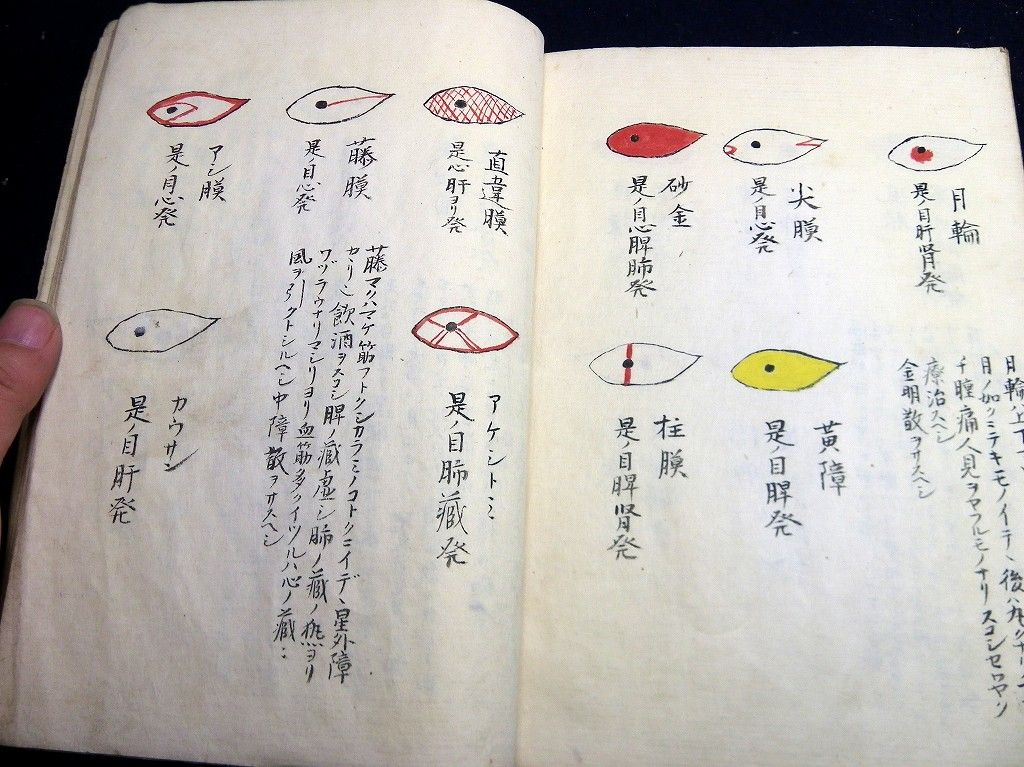 月輪
是ノ目肝腎発
尖膜
是ノ目心発
砂金
是ノ目心脾肺発
療治スヘシ
金明散ヲサスヘシ
黄障
是ノ目脾発
柱膜
是ノ目脾腎発
直違膜
是心肝ヨリ発
藤膜
是ノ目心発
アシ膜
是ノ目心発
アケシトミ
是ノ目肺蔵発
藤マクハマケ筋フトクシカラミノコトクニイデヽ星外障
カヽリ 飲酒ヲスコシ脾ノ蔵虚シ肺ノ蔵ノ熱ヨリ
ワヅラウナリマシリヨリ血筋多クイツルハ心ノ蔵ニ
風ヲ引クトシルヘシ中障散ヲサスヘシ
カウサン
是ノ目肝発